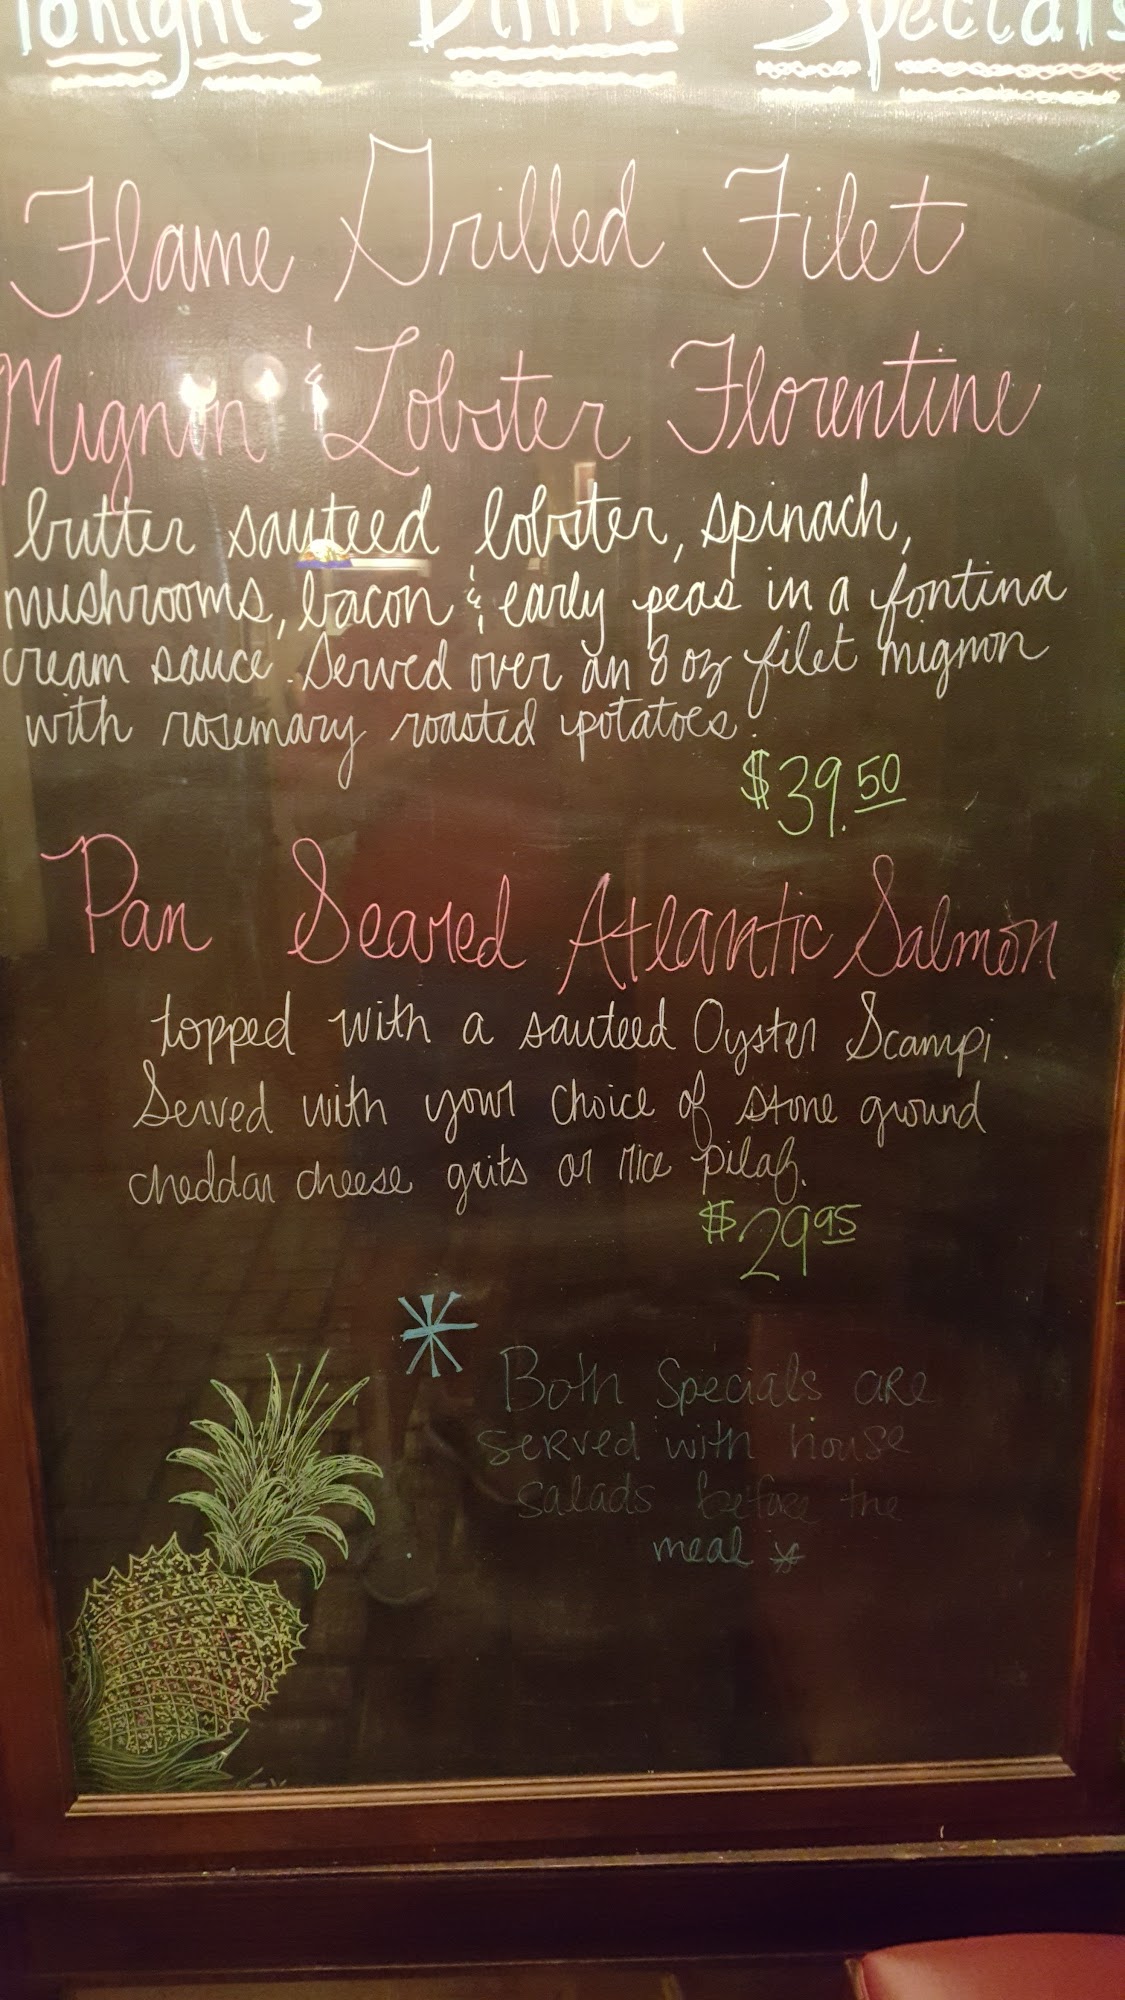 Tonight's Dinner Specials
Flame Grilled Filet
Mignon & Lobster Florentine
butter sauteed lobster, spinach,
mushrooms, bacon & early peas in a fontina
cream sauce. Served over an 8 oz filet mignon
with rosemary roasted potatoes.
$39.50
Pan Seared Atlantic Salmon
topped with a sauteed Oyster Scampi.
Served with your choice of stone ground
cheddar cheese grits or rice pilaf.
$29.95
* Both Specials are
served with house
salads before the
meal *